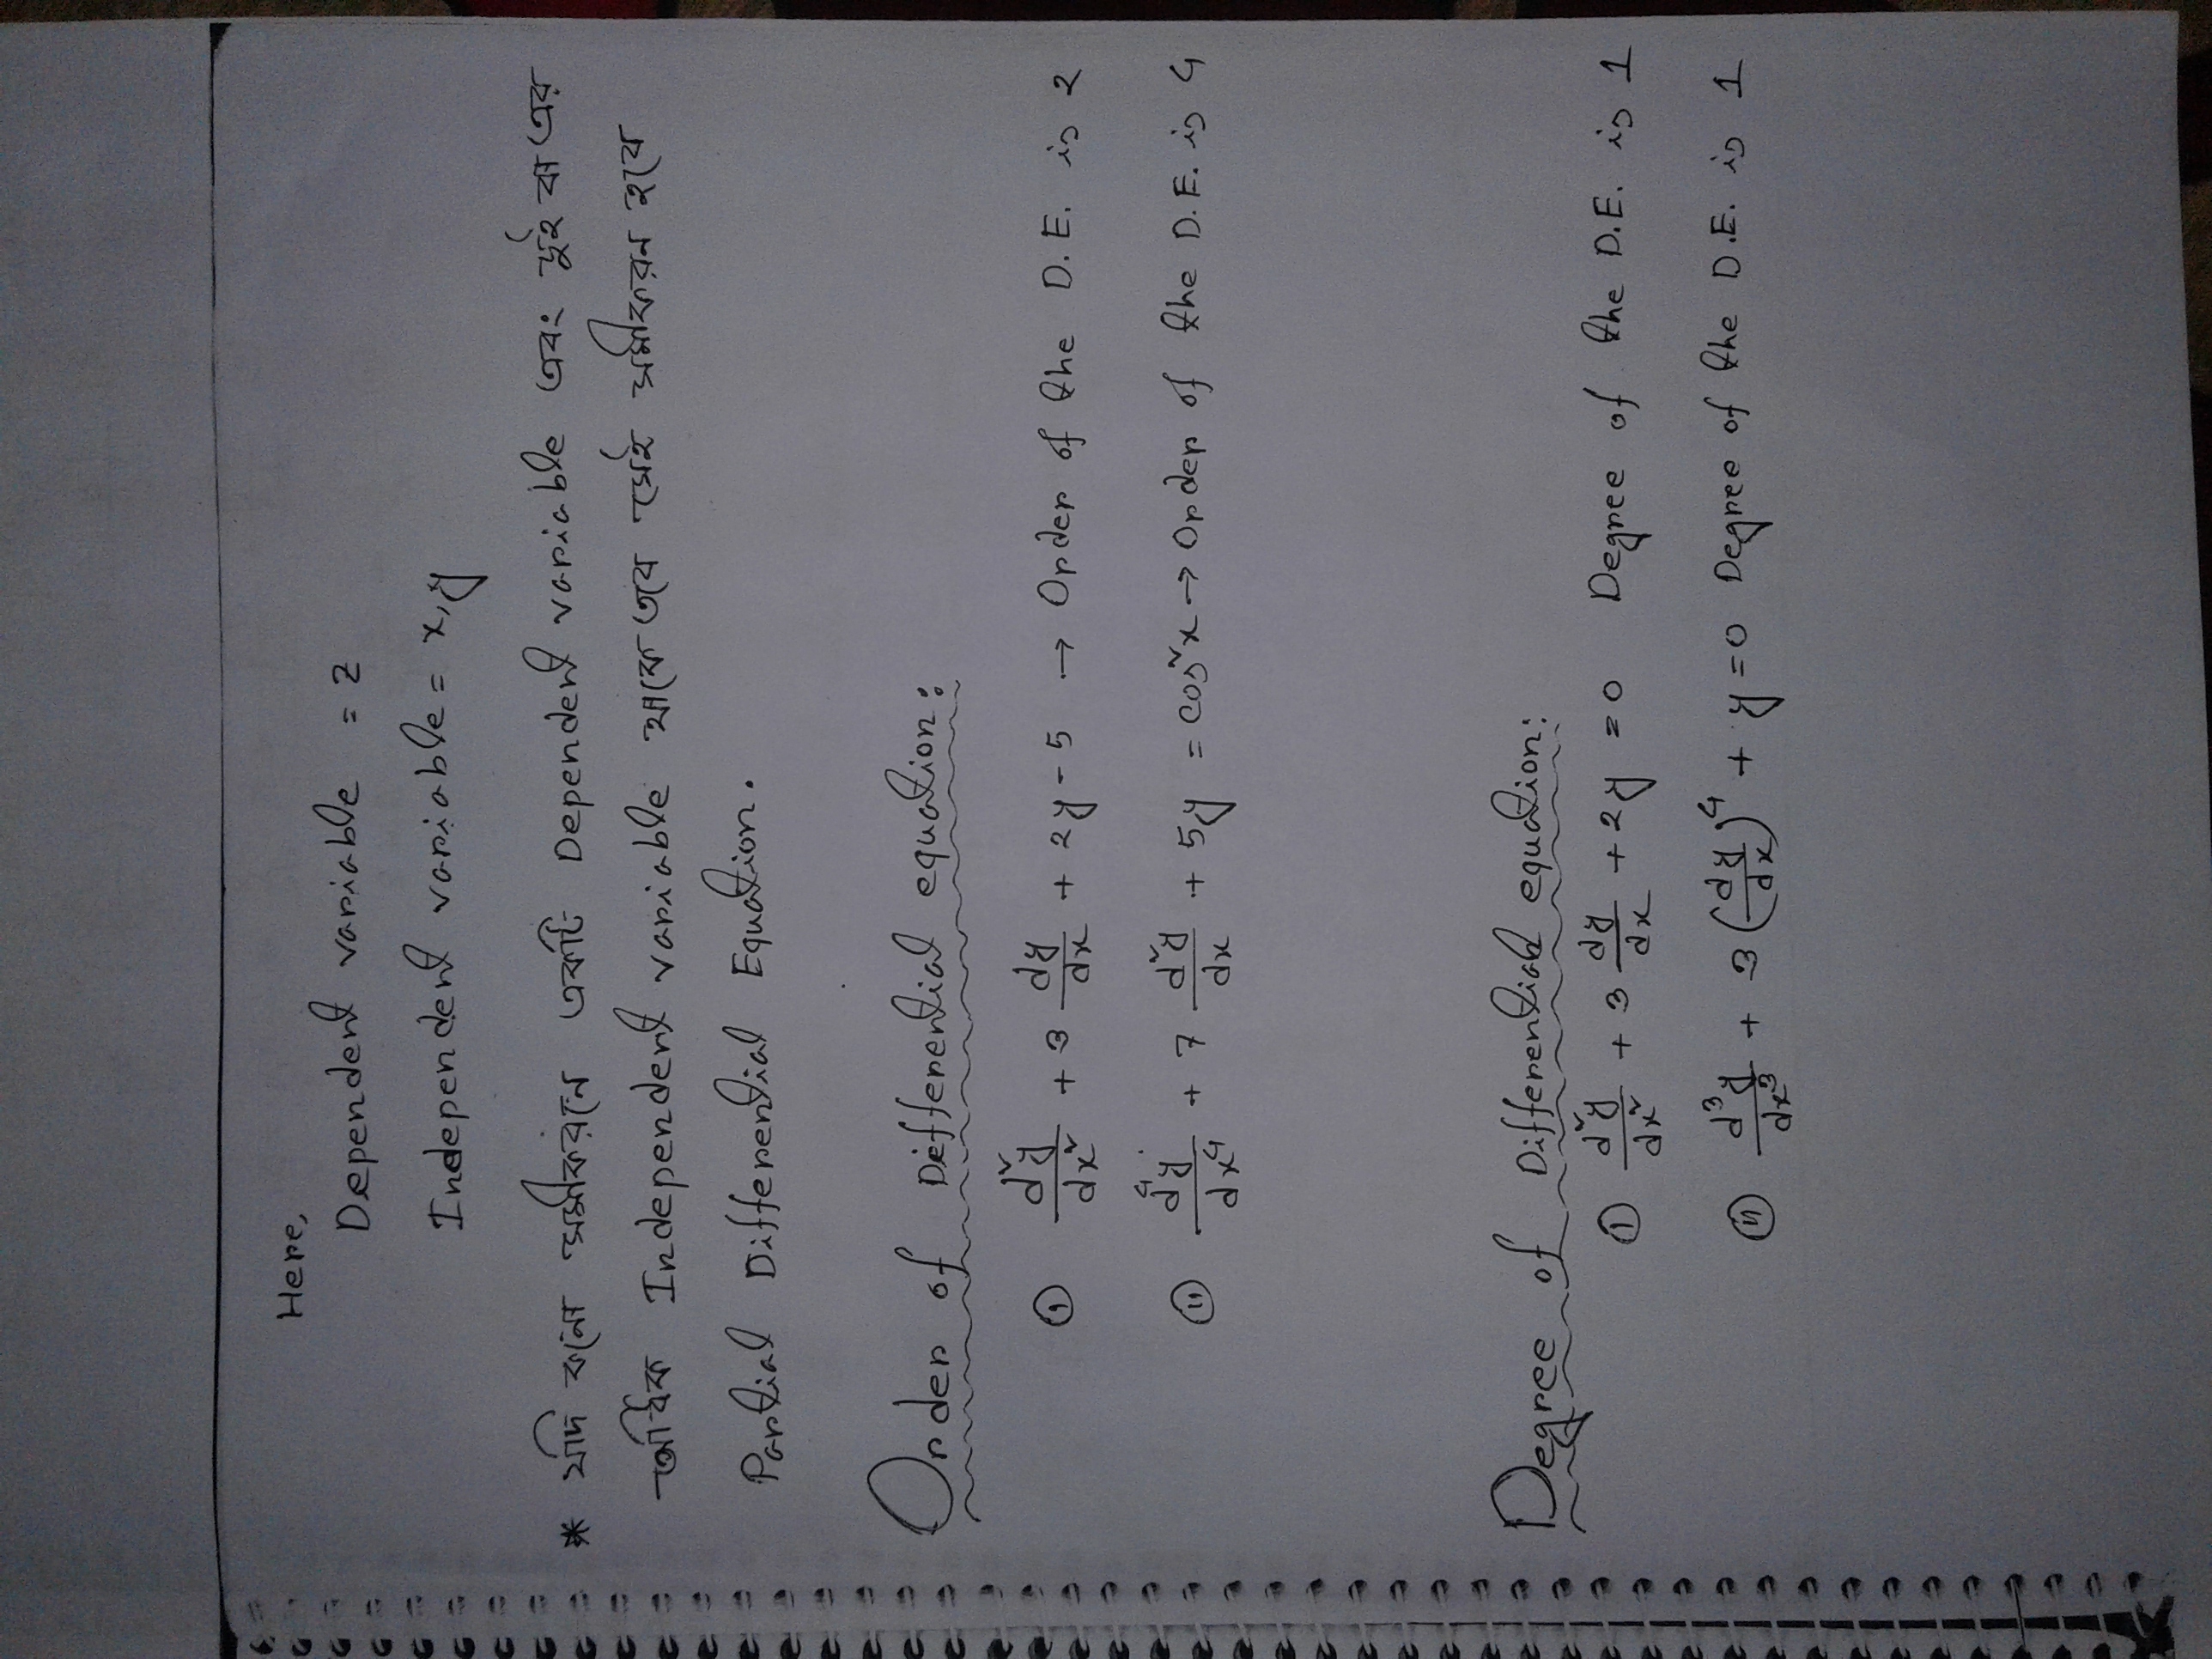 Here,
Dependent variable = z
Independent variable = x, y
* যদি কনো সমীকরনে একটি Dependent variable এবং দুই বা এর
অধিক Independent variable থাকে তবে সেই সমীকরন হবে
Partial Differential Equation.
Order of Differential equation:
(i) d²y/dx² + 3 dy/dx + 2y - 5 → Order of the D.E. is 2
(ii) d⁴y/dx⁴ + 7 d²y/dx + 5y = cos²x → Order of the D.E. is 4
Degree of Differential equation:
(i) d²y/dx² + 3 dy/dx + 2y = 0 Degree of the D.E. is 1
(ii) d³y/dx³ + 3 (dy/dx)⁴ + y = 0 Degree of the D.E. is 1